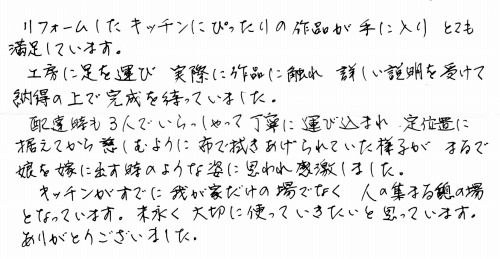 リフォームしたキッチンにぴったりの作品が手に入りとても
満足しています。
工房に足を運び 実際に作品に触れ 詳しい説明を受けて
納得の上で完成を待っていました。
配達時も3人でいらっしゃって丁寧に運び込まれ 定位置に
据えてから 慈しむように布で拭きあげられていた様子が まるで
娘を嫁に出す時のような姿に思われ感激しました。
キッチンがすでに我が家だけの場でなく 人の集まる憩の場
となっています。末永く大切に使っていきたいと思っています。
ありがとうございました。